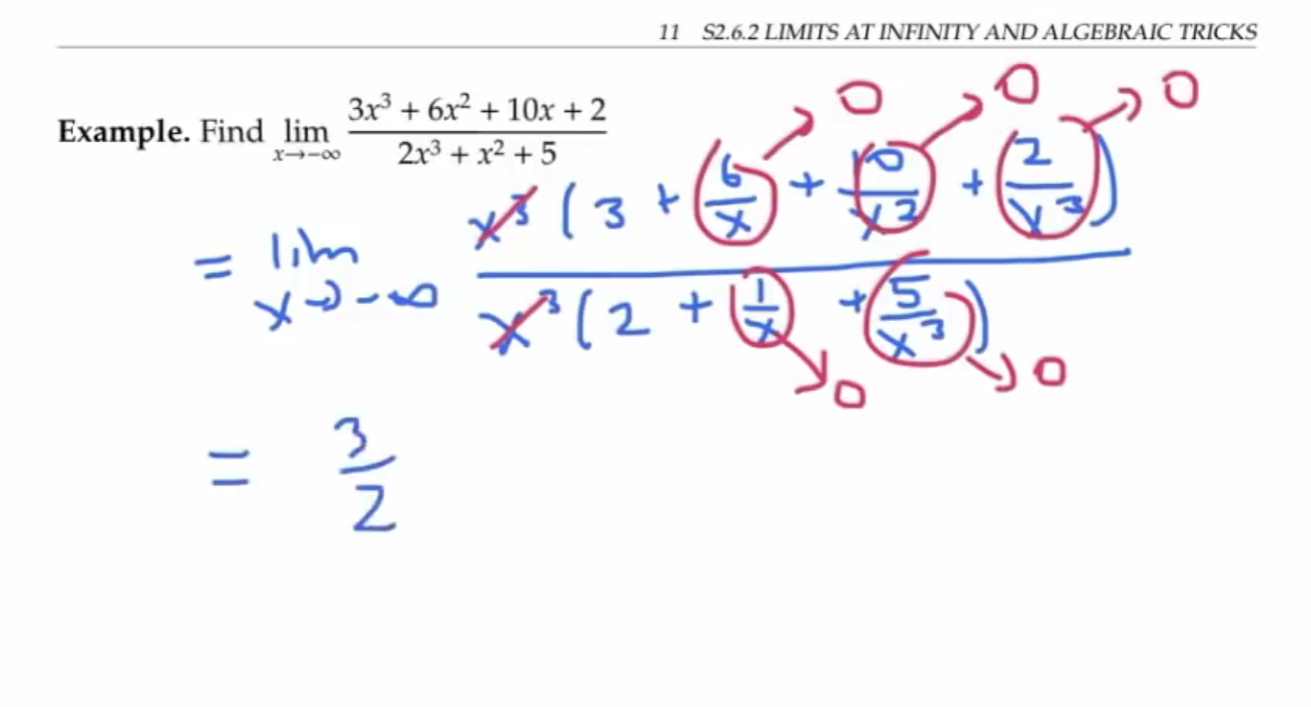 11 S2.6.2 LIMITS AT INFINITY AND ALGEBRAIC TRICKS
Example. Find lim x→−∞ (3x³ + 6x² + 10x + 2)/(2x³ + x² + 5)
0 0 0
= lim x→−∞ x³(3 + 6/x + 10/x² + 2/x³) / x³(2 + 1/x + 5/x³)
0 0
= 3/2